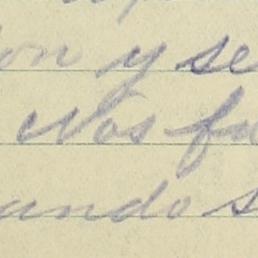 on y se
Nos fu
ando s